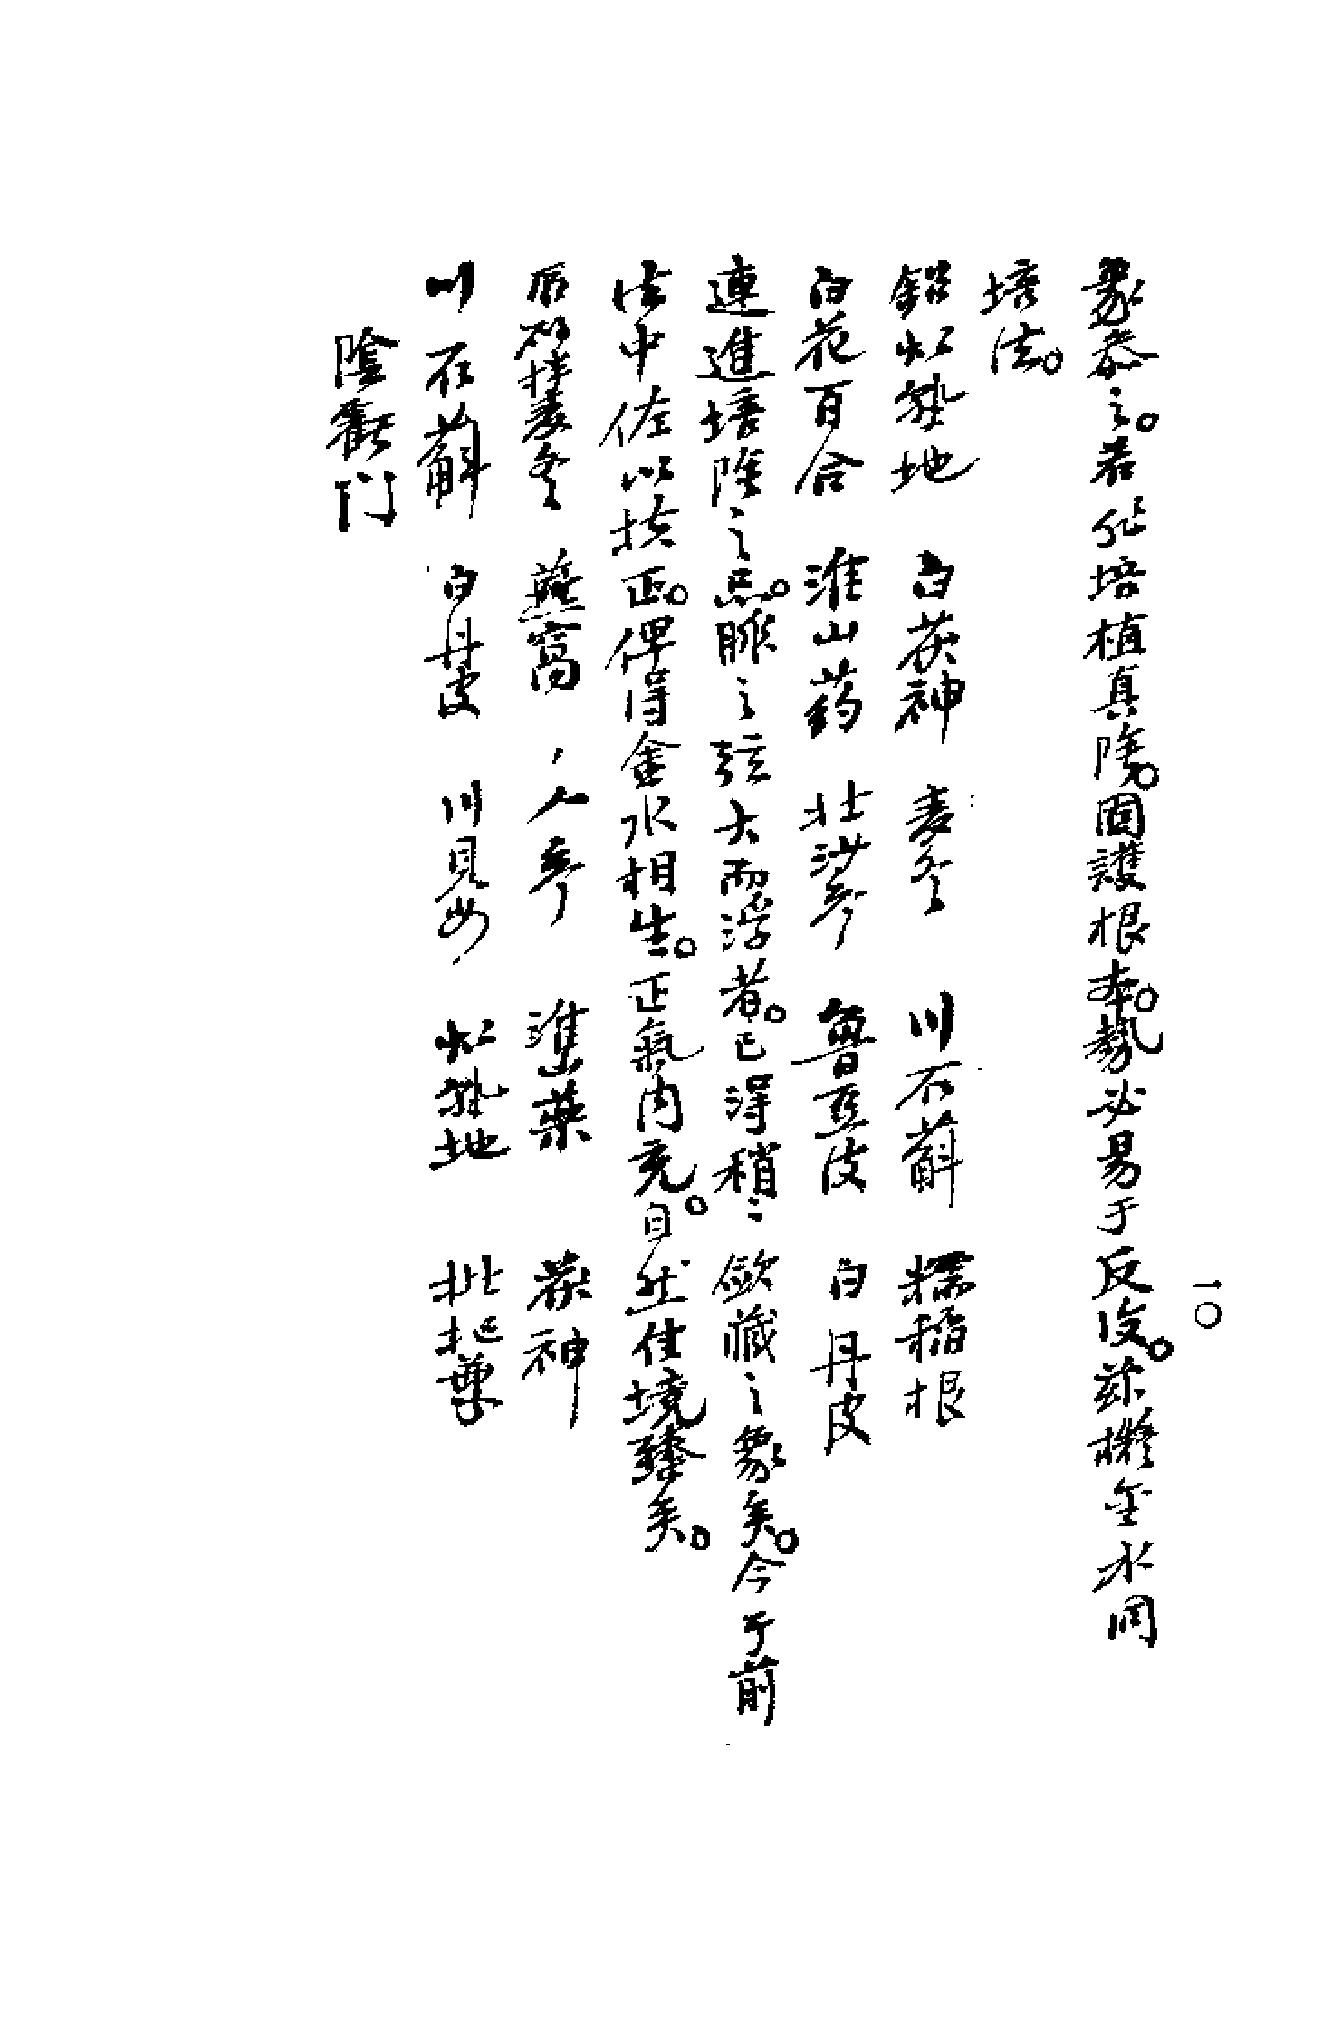 象参之。若非培植真陰。固護根本。勢必易于反復。兹擬金水同
培法。
鉛炒熟地　白茯神　麦冬　川石斛　糯稻根
白花百合　淮山药　北沙参　魯豆皮　白丹皮
連進培陰之品。脈之弦大而浮者。已得稍〻歛藏之象矣。今于前
法中佐以扶正。俾得金水相生。正氣内充。自然佳境臻矣。
辰砂拌麦冬　燕窩　人参　淮山藥　茯神
川石斛　白丹皮　川貝母　炒熟地　枇杷葉
陰虧门
一〇